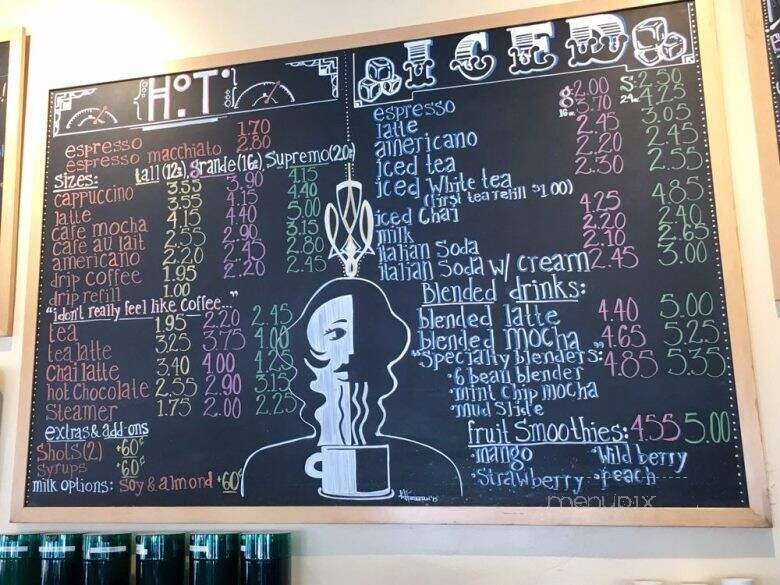 HOT
espresso 1.70
espresso macchiato 2.80
sizes: tall (12oz), grande (16oz), supremo (20oz)
cappuccino 3.55 3.90 4.15
latte 3.55 4.15 4.40
cafe mocha 4.15 4.40 5.00
cafe au lait 2.55 2.90 3.15
americano 2.20 2.45 2.80
drip coffee 1.95 2.20 2.45
drip refill 1.00
"i don't really feel like coffee..."
tea 1.95 2.20 2.45
tea latte 3.25 3.75 4.00
chai latte 3.40 4.00 4.25
hot chocolate 2.55 2.90 3.15
steamer 1.75 2.00 2.25
extras & add-ons
shots (2) +60¢
syrups +60¢
milk options: soy & almond +60¢
ICED
g 16oz s 24oz
espresso 2.00 2.50
latte 3.70 4.25
americano 2.45 3.05
iced tea 2.20 2.45
iced white tea 2.30 2.55
(first tea refill $1.00)
iced chai 4.25 4.85
milk 2.20 2.40
italian soda 2.10 2.65
italian soda w/ cream 2.45 3.00
Blended drinks:
blended latte 4.40 5.00
blended mocha 4.65 5.25
"specialty blenders": 4.85 5.35
•6 bean blender
•mint chip mocha
•mud slide
fruit smoothies: 4.55 5.00
•mango •wild berry
•strawberry •peach
menupix